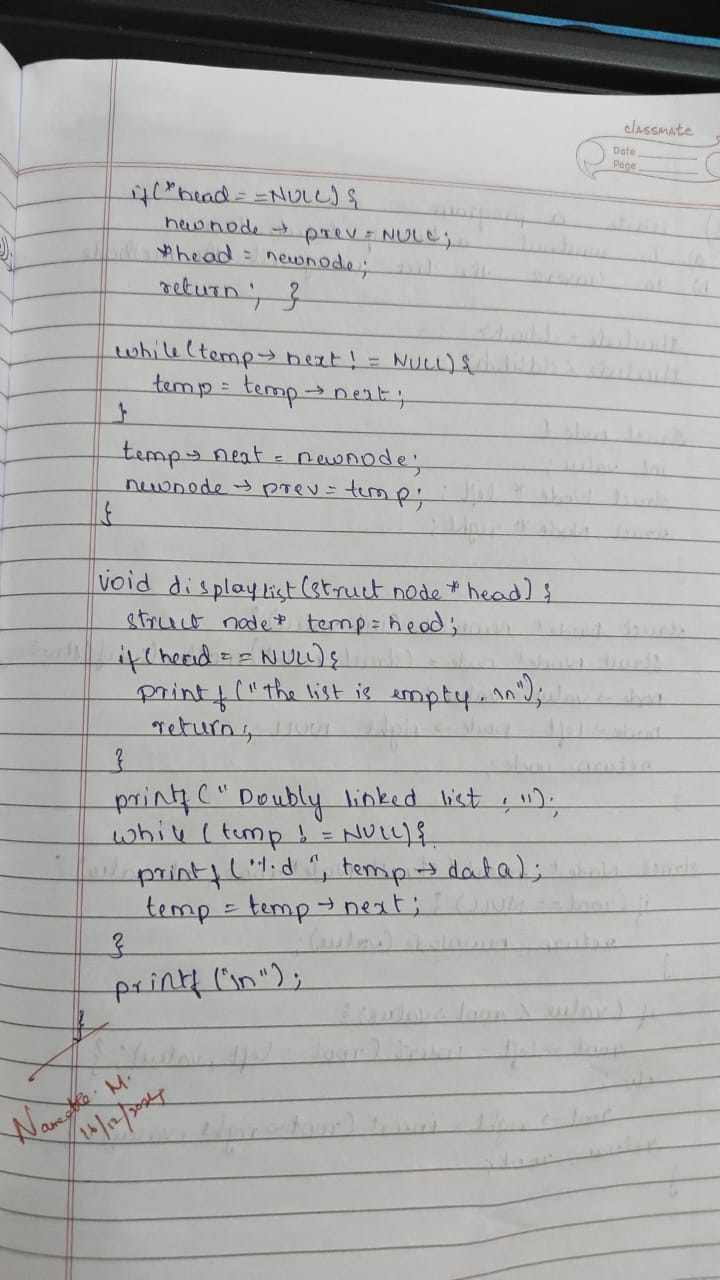 classmate
Date
Page
if(*head = =NULL) {
newnode → prev = NULL;
*head = newnode;
return; }
while(temp→ next ! = NULL) {
temp = temp → next;
}
temp→ next = newnode;
newnode → prev = temp;
}
void displaylist (struct node * head) {
struct node* temp = head;
if (head = = NULL) {
printf ("the list is empty. \n");
return;
}
printf (" Doubly linked list : ");
while (temp ! = NULL) {
printf ("%d ", temp → data);
temp = temp → next;
}
printf ("\n");
}
M.